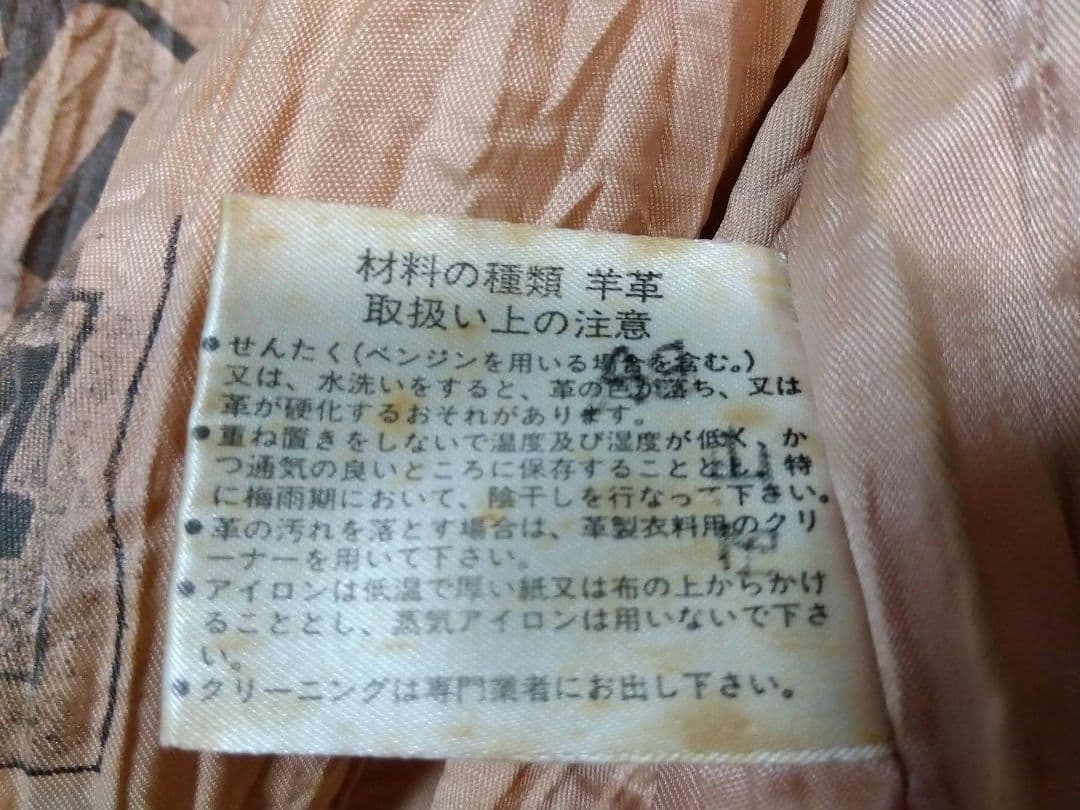 材料の種類 羊革
取扱い上の注意
● せんたく(ベンジンを用いる場合を含む。)
又は、水洗いをすると、革の色が落ち、又は
革が硬化するおそれがあります。
● 重ね置きをしないで温度及び湿度が低く、か
つ通気の良いところに保存することとし、特
に梅雨期において、陰干しを行なって下さい。
● 革の汚れを落とす場合は、革製衣料用のクリ
ーナーを用いて下さい。
● アイロンは低温で厚い紙又は布の上からかけ
ることとし、蒸気アイロンは用いないで下さ
い。
● クリーニングは専門業者にお出し下さい。